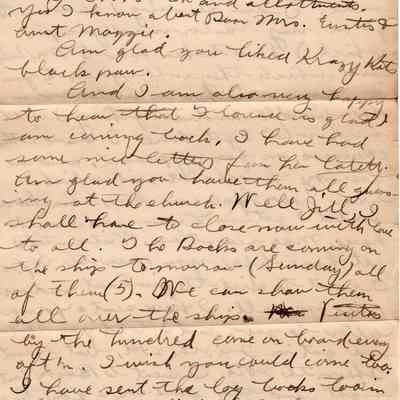 and allotments.
Yes I know about Dear Mrs. Eustis &
aunt Maggie.
Am glad you liked Krazy Kat's
black paw.
And I am also very happy
to hear that Florence is glad I
am coming back. I have had
some nice letters from her lately.
Am glad you have them all guess-
ing at the church. Well Jill, I
shall have to close now with love
to all. The Bocks are coming on
the ship tomorrow (Sunday) all
of them (5). We can show them
all over the ship. Visitors
by the hundred come on board every
aft'n. I wish you could come too.
I have sent the log books to